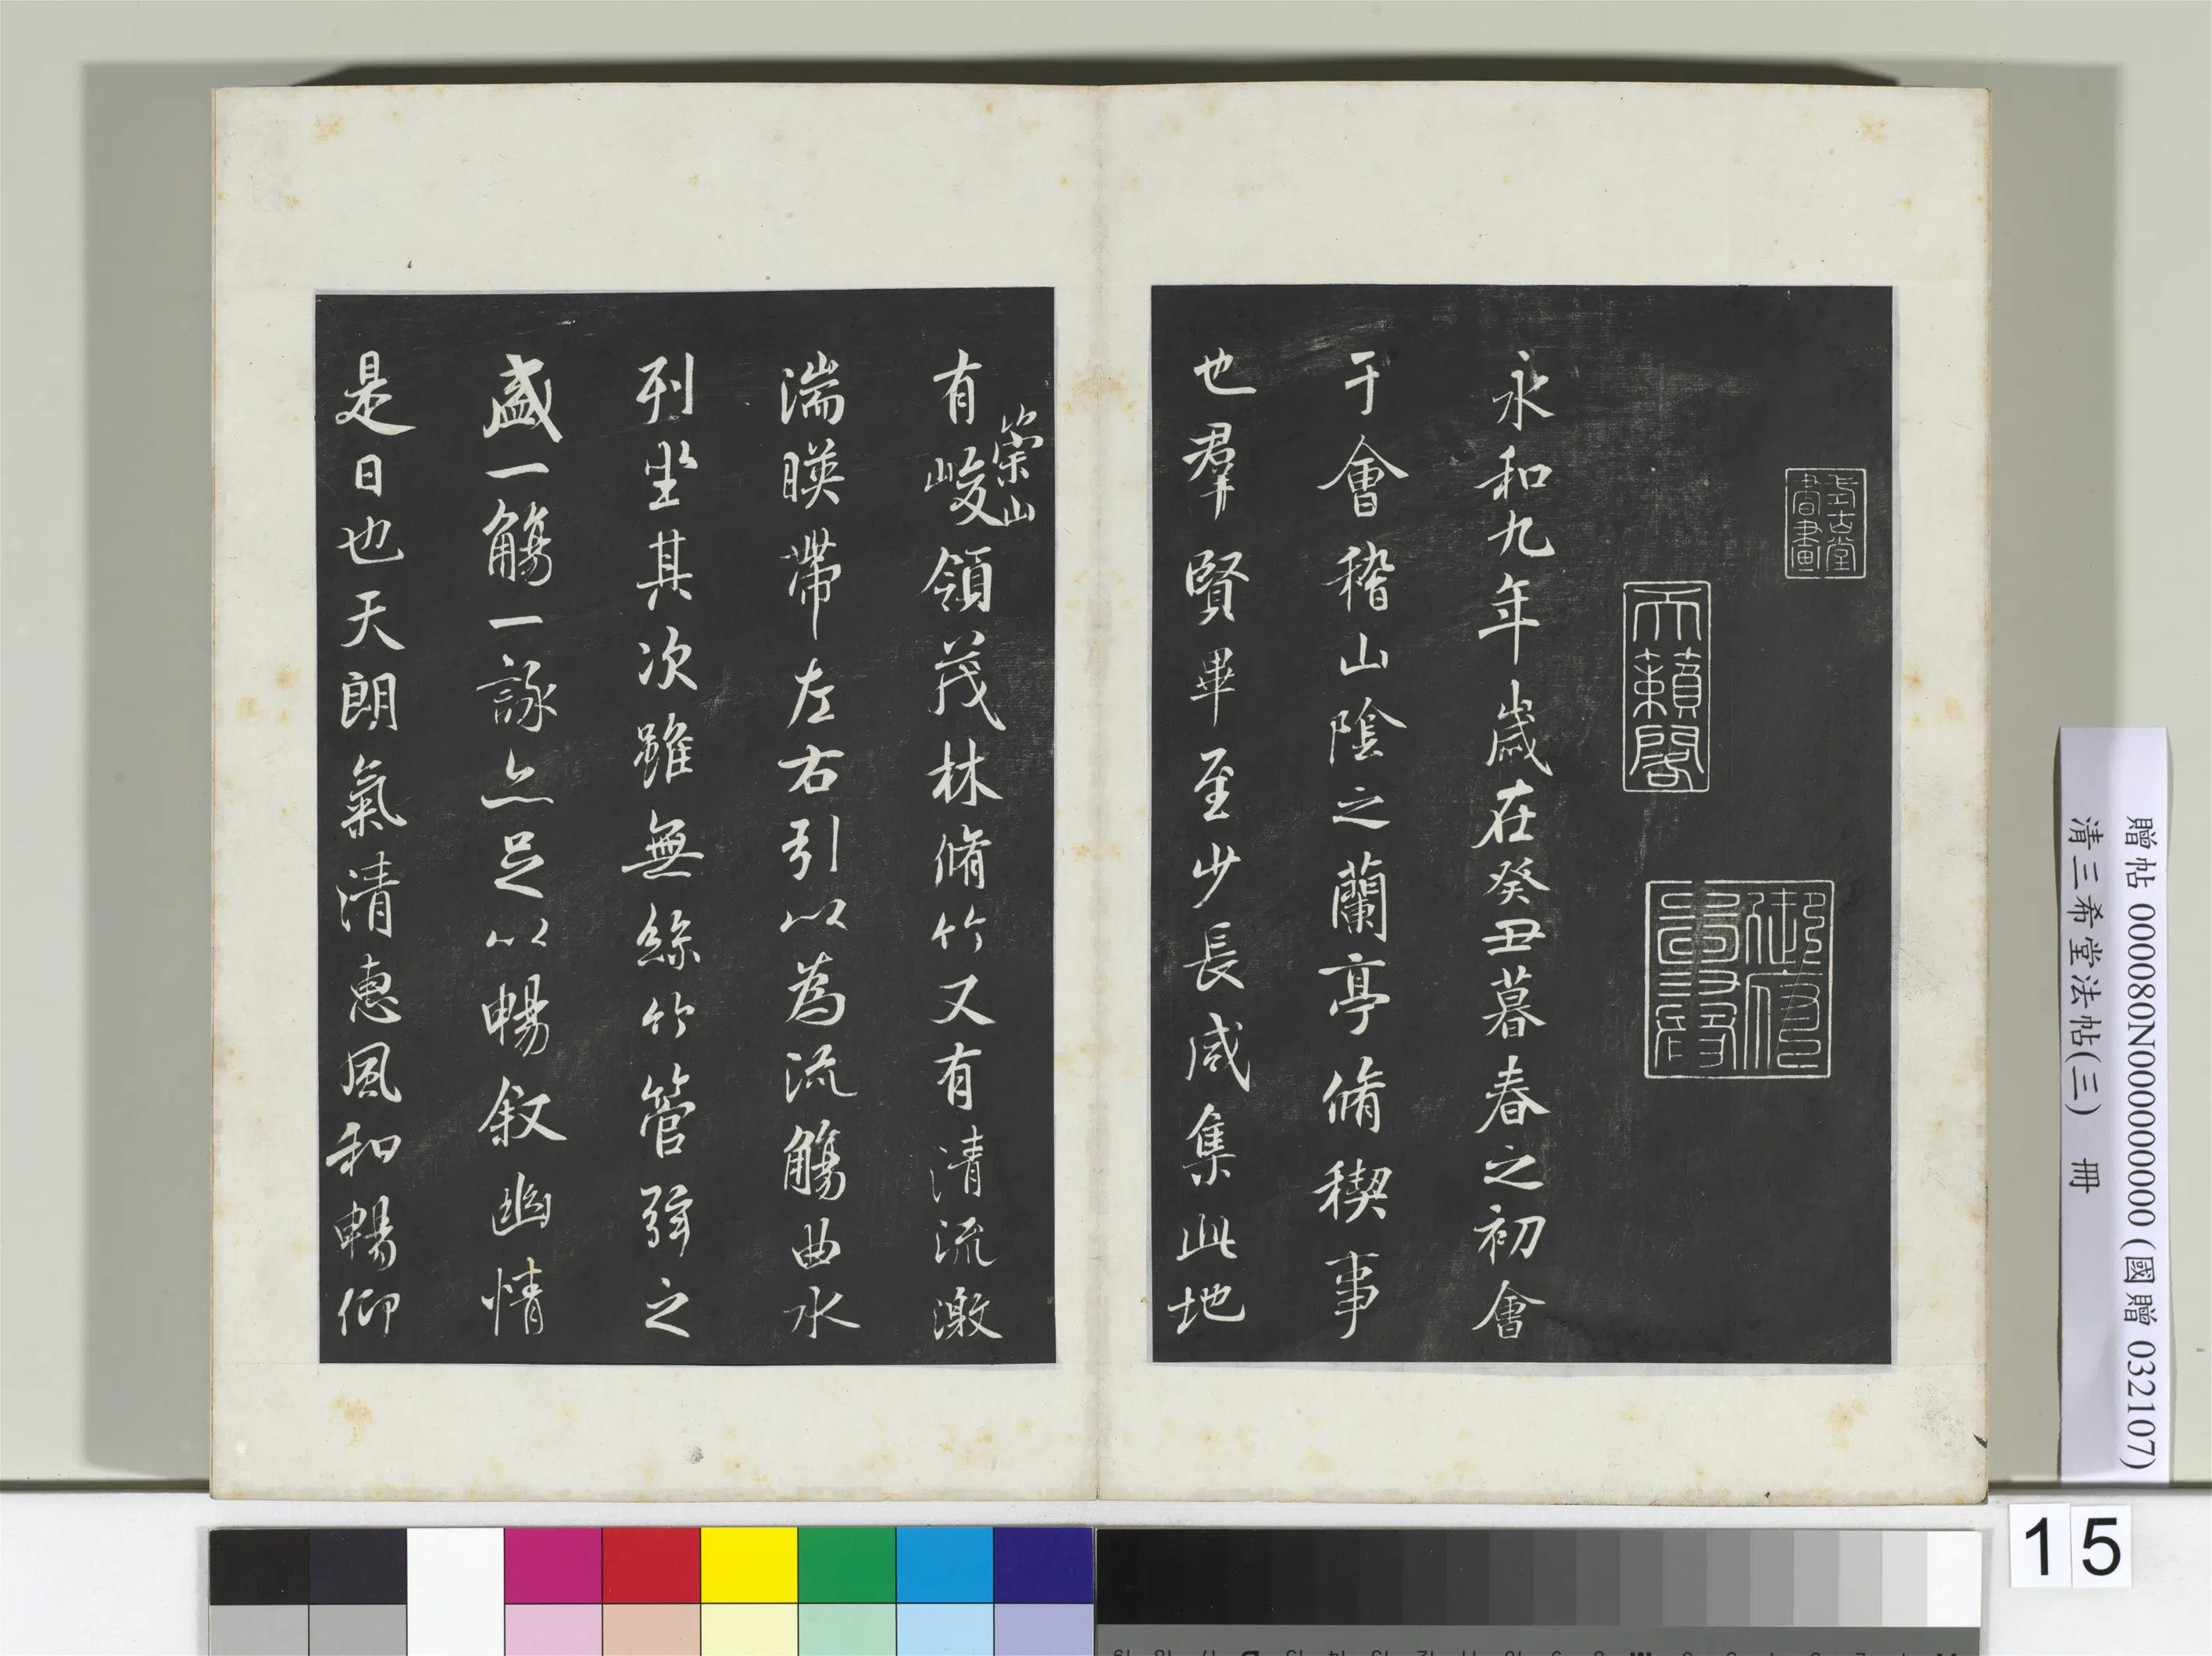 永和九年歲在癸丑暮春之初會
于會稽山陰之蘭亭脩稧事
也羣賢畢至少長咸集此地
有峻領茂林脩竹又有清流激
崇山
湍暎帶左右引以為流觴曲水
列坐其次雖無絲竹管弦之
盛一觴一詠亦足以暢敘幽情
是日也天朗氣清惠風和暢仰
天籟閣
書畫
贈帖 000080N000000000 (國贈 032107)
清三希堂法帖(三) 冊
15